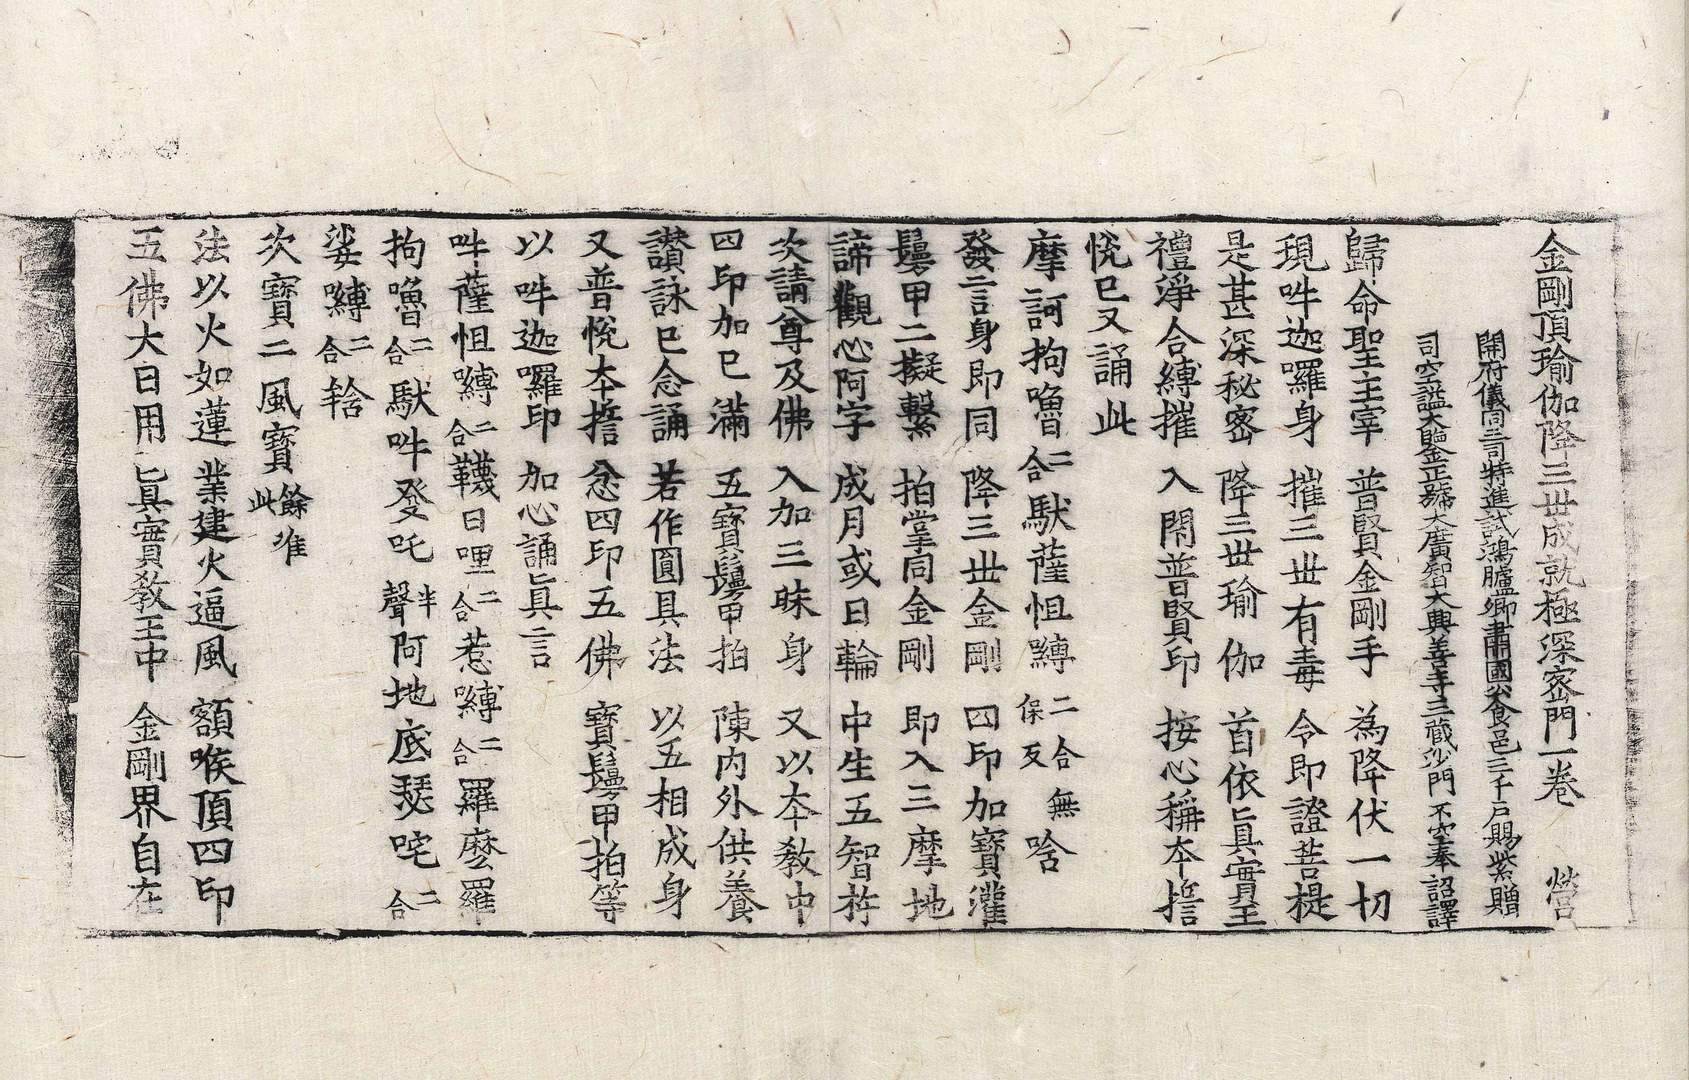 金剛頂瑜伽降三世成就極深密門一卷 營
開府儀同三司特進試鴻臚卿肅國公食邑三千戶賜紫贈
司空諡大鑒正號大廣智大興善寺三藏沙門不空奉詔譯
歸命聖主宰 普賢金剛手 為降伏一切
現吽迦囉身 摧三世有毒 令即證菩提
是甚深秘密 降三世瑜伽 首依真實王
禮淨合縛摧 入開普賢印 按心稱本誓
悅已又誦此
摩訶拘嚕二合馱薩怛嚩二合無保反唅
發言身即同 降三世金剛 四印加寶灌
鬘甲二擬繫 拍掌同金剛 即入三摩地
諦觀心阿字 成月或日輪 中生五智杵
次請尊及佛 入加三昧身 又以本教中
四印加已滿 五寶鬘甲拍 陳內外供養
讚詠已念誦 若作圓具法 以五相成身
又普悅本誓 忿四印五佛 寶鬘甲拍等
以吽迦囉印 加心誦真言
吽薩怛嚩二合韈日哩二合惹嚩二合羅麼羅
拘嚕二合馱吽發吒半聲阿地底瑟咤二合
娑嚩二合䤈
次寶二風寶餘准此
法以火如蓮 業建火逼風 額喉頂四印
五佛大日用 真實教王中 金剛界自在